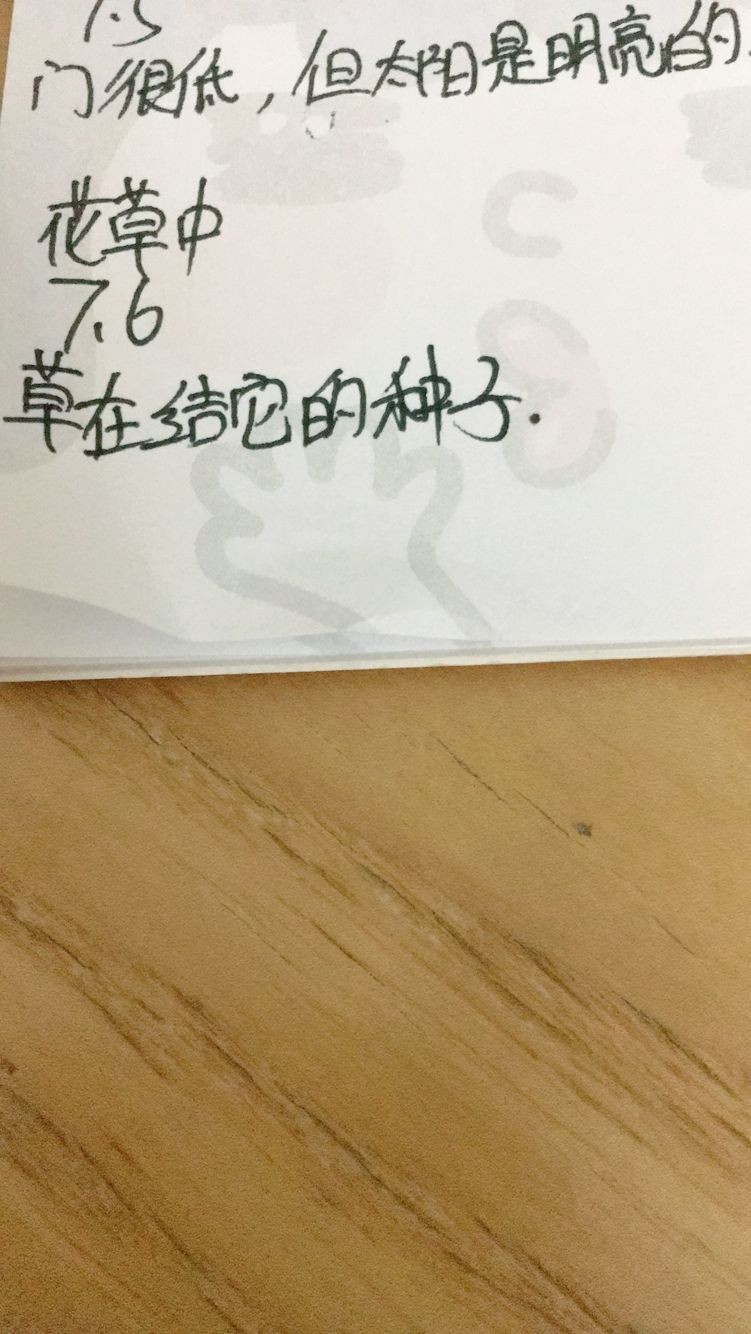 门很低，但太阳是明亮的.
花草中
7.6
草在结它的种子.